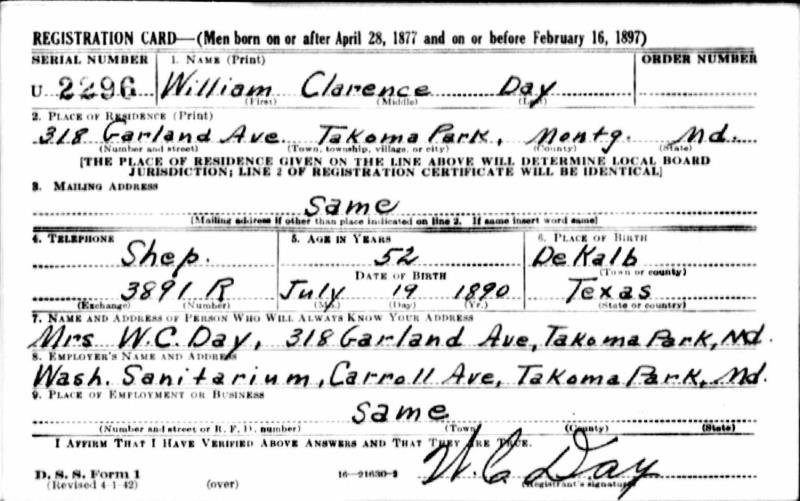 REGISTRATION CARD—(Men born on or after April 28, 1877 and on or before February 16, 1897)
SERIAL NUMBER 1. NAME (Print) ORDER NUMBER
U 2296 William Clarence Day
(First) (Middle) (Last)
2. PLACE OF RESIDENCE (Print)
318 Garland Ave. Takoma Park, Montg. Md.
(Number and street) (Town, township, village, or city) (County) (State)
[THE PLACE OF RESIDENCE GIVEN ON THE LINE ABOVE WILL DETERMINE LOCAL BOARD
JURISDICTION; LINE 2 OF REGISTRATION CERTIFICATE WILL BE IDENTICAL]
3. MAILING ADDRESS
Same
(Mailing address if other than place indicated on line 2. If same insert word same)
4. TELEPHONE 5. AGE IN YEARS 6. PLACE OF BIRTH
Shep. 52 DeKalb
DATE OF BIRTH (Town or county)
3891 R July 19 1890 Texas
(Exchange) (Number) (Mo.) (Day) (Yr.) (State or country)
7. NAME AND ADDRESS OF PERSON WHO WILL ALWAYS KNOW YOUR ADDRESS
Mrs W.C. Day, 318 Garland Ave, Takoma Park, Md.
8. EMPLOYER'S NAME AND ADDRESS
Wash. Sanitarium, Carroll Ave, Takoma Park, Md.
9. PLACE OF EMPLOYMENT OR BUSINESS
Same
(Number and street or R. F. D. number) (Town) (County) (State)
I AFFIRM THAT I HAVE VERIFIED ABOVE ANSWERS AND THAT THEY ARE TRUE.
W. C. Day
D. S. S. Form 1 16—21630-2
(Revised 4-1-42) (over) (Registrant's signature)